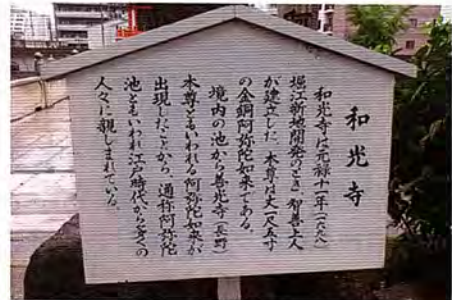 和光寺
和光寺は元禄十一年(一六九八)
堀江新地開発のとき、智善上人
が建立した。本尊は丈一尺五寸
の金銅阿弥陀如来である。
境内の池から善光寺(長野)
本尊ともいわれる阿弥陀如来が
出現したことから、通称阿弥陀
池ともいわれ江戸時代から多くの
人々に親しまれている。